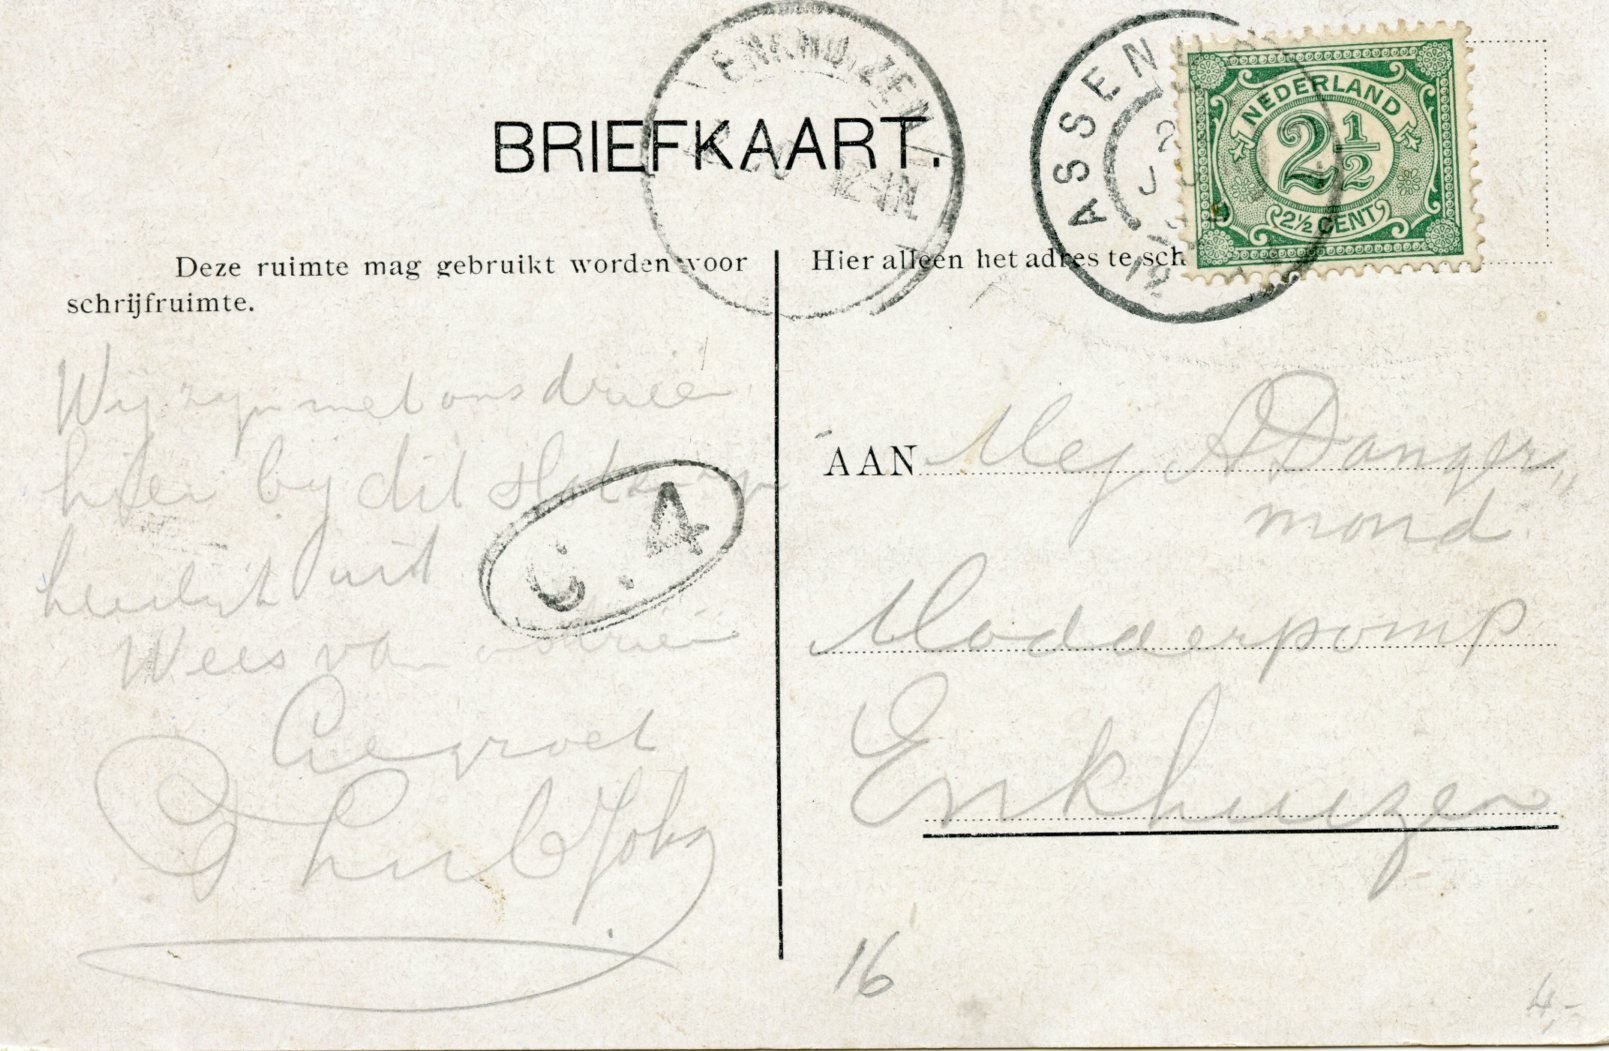 ENKHUIZEN
12-1N
ASSEN
NEDERLAND
2½
2½ CENT
BRIEFKAART.
Deze ruimte mag gebruikt worden voor
schrijfruimte.
Hier alleen het adres te sch
Wij zijn met ons drieën
hier bij dit
heerlijk uit
Wees van
Gegroet
AAN Mej Dangers,,
mond
Modderpomp
Enkhuizen
16
4,-